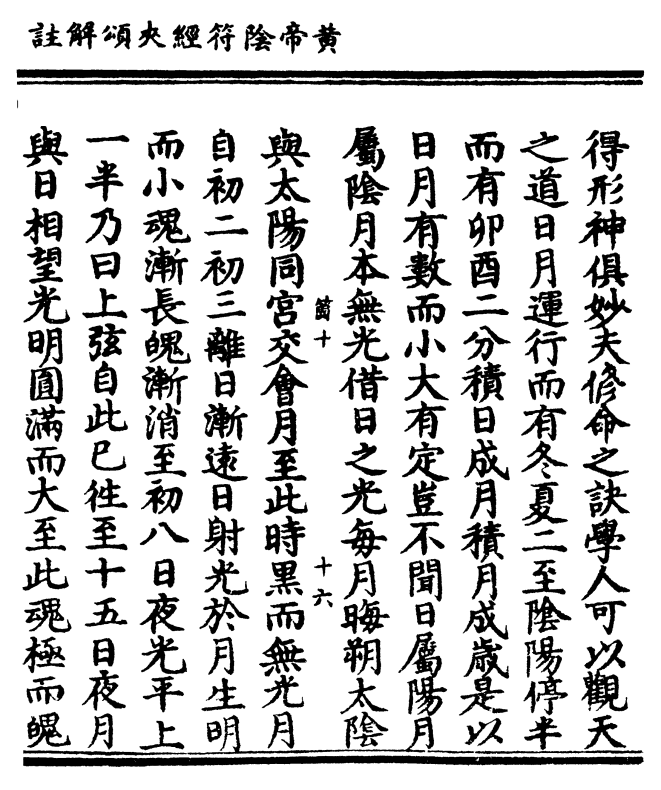 黄帝陰符經夾頌解註
得形神俱妙夫修命之訣學人可以觀天
之道日月運行而有冬夏二至陰陽停半
而有卯酉二分積日成月積月成歲是以
日月有數而小大有定豈不聞日屬陽月
屬陰月本無光借日之光每月晦朔太陰
箇十
十六
與太陽同宮交會月至此時黑而無光月
自初二初三離日漸遠日射光於月生明
而小魂漸長魄漸消至初八日夜光平上
一半乃曰上弦自此已徃至十五日夜月
與日相望光明圓滿而大至此魂極而魄